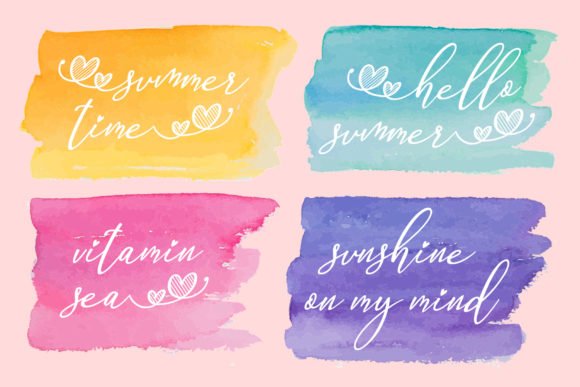 summer
time
hello
summer
vitamin
sea
sunshine
on my mind